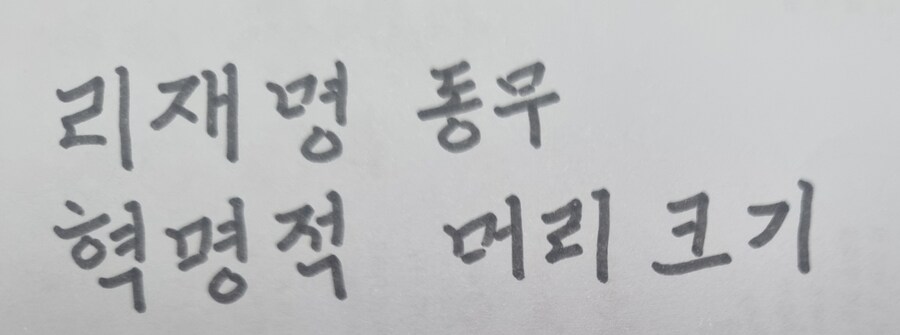 리재명 동무
혁명적 머리 크기